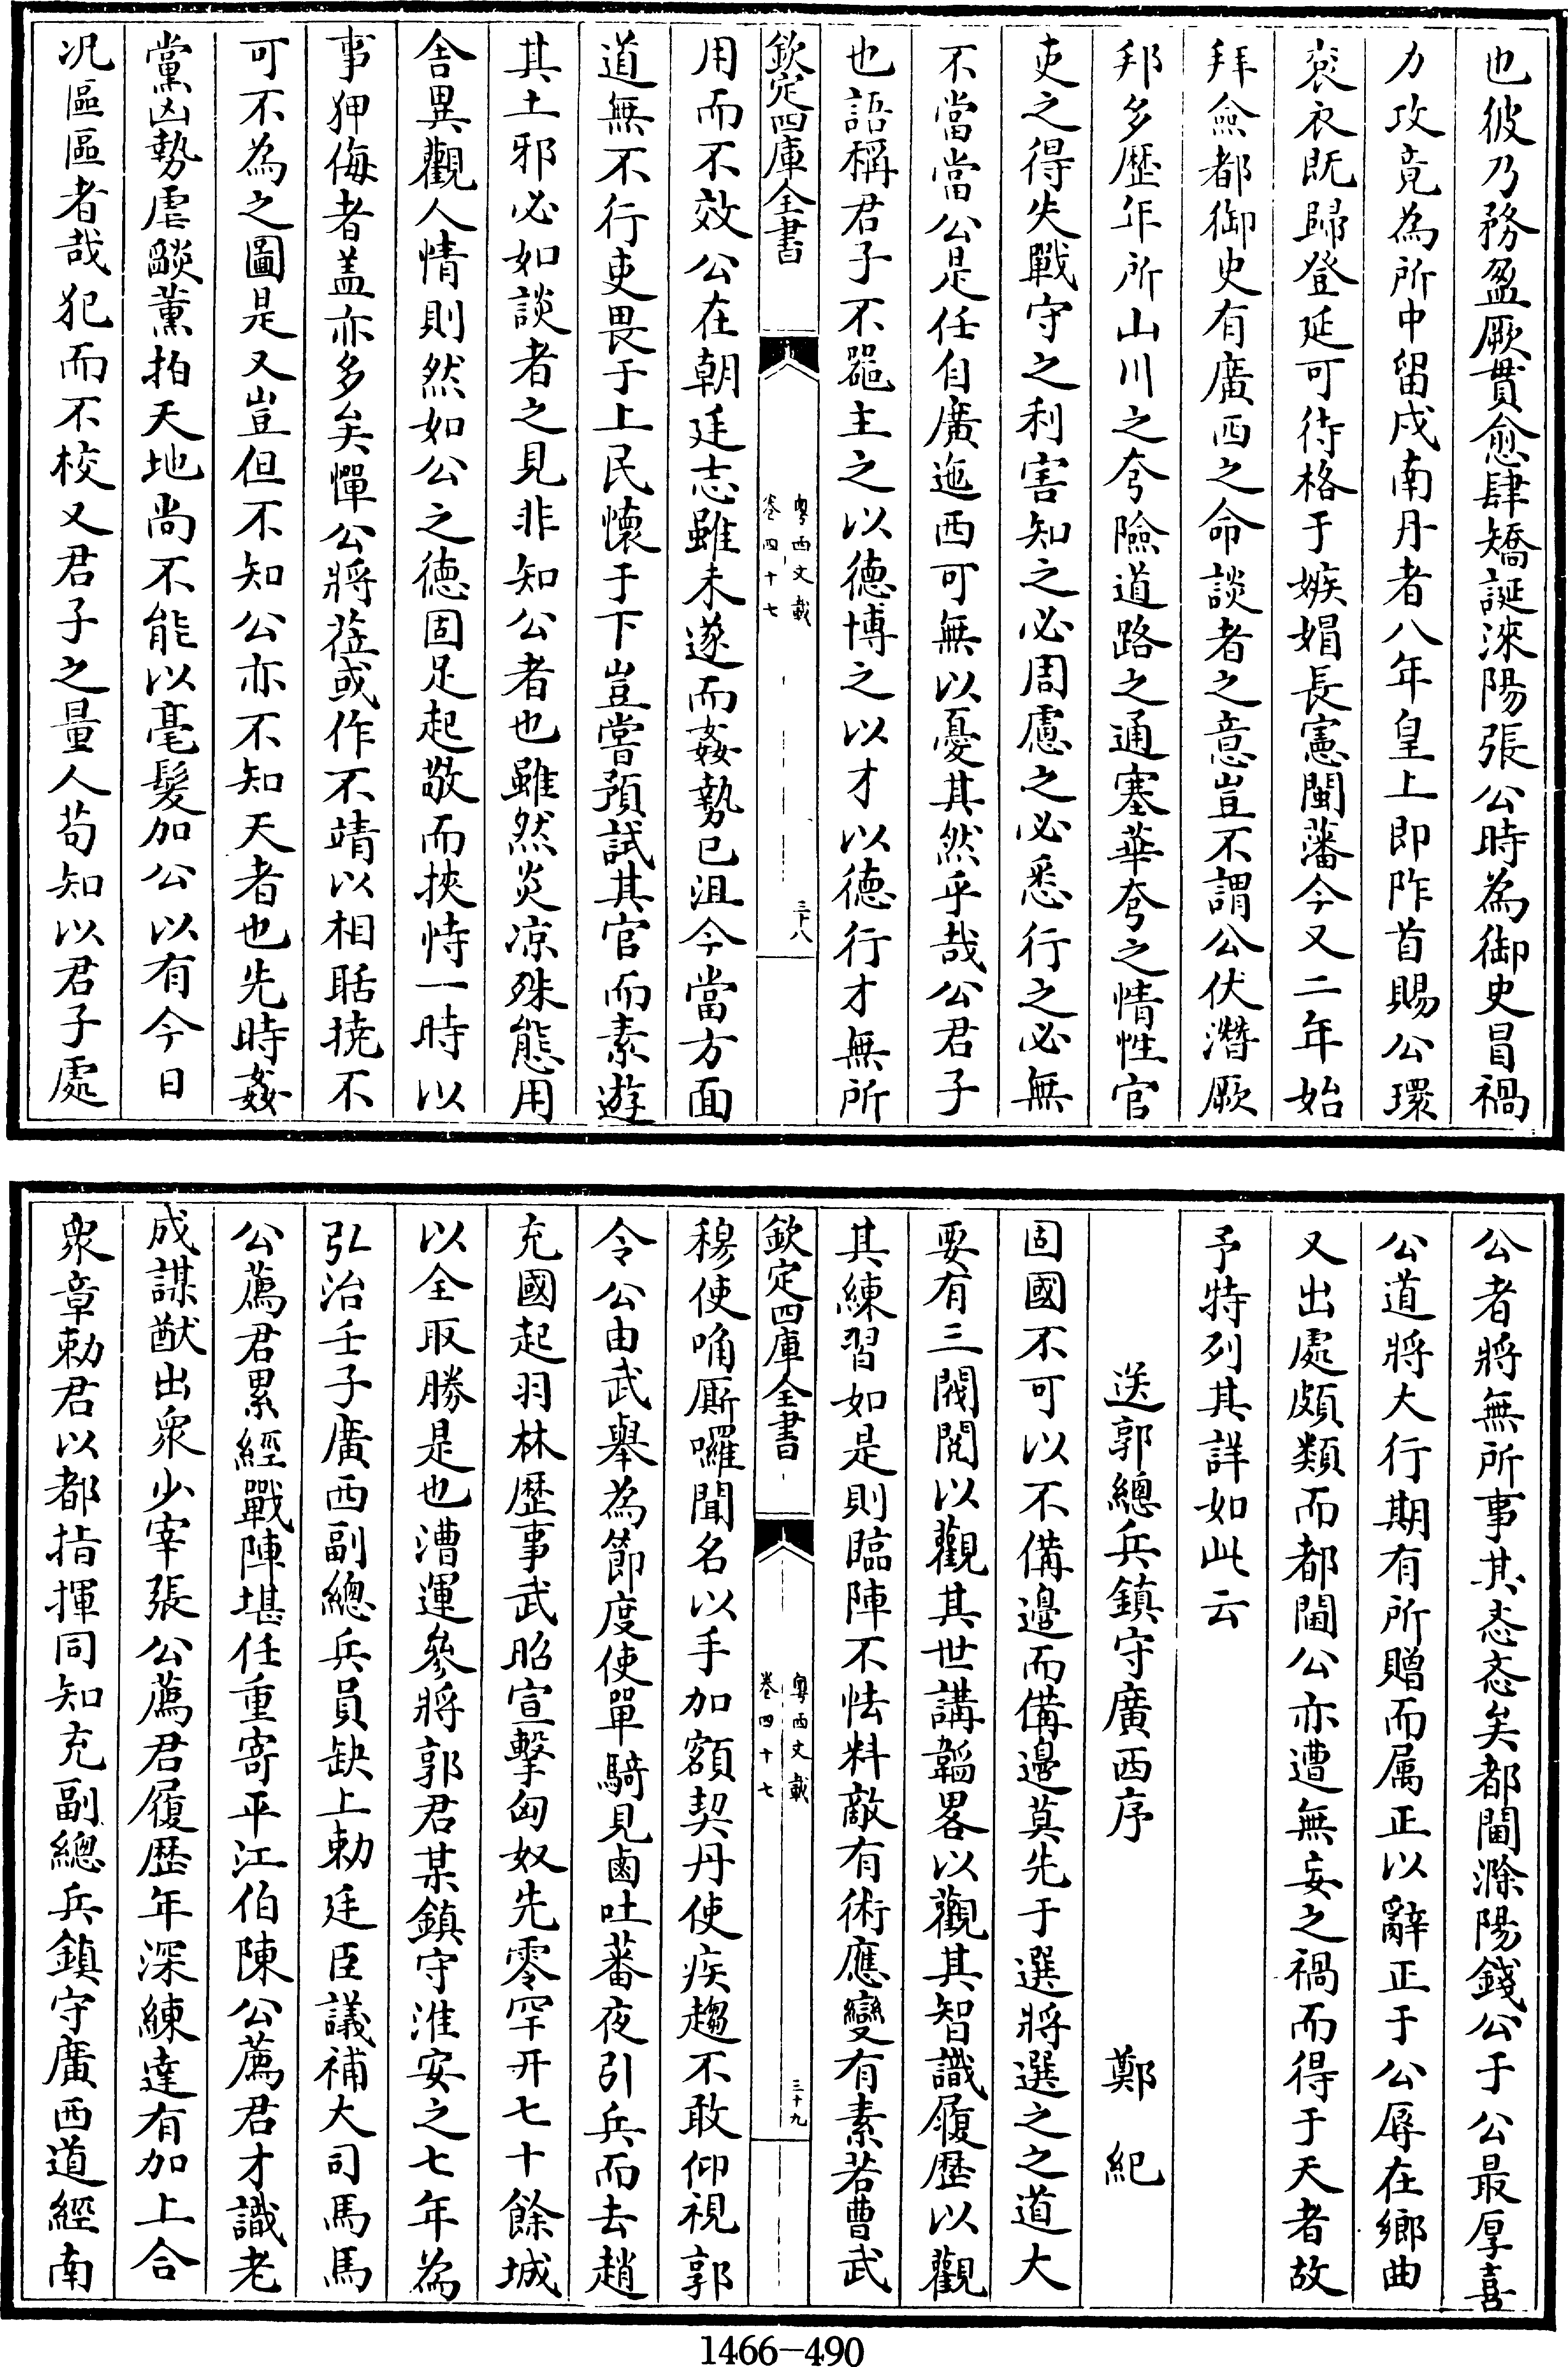 也彼乃務盈厥貫愈肆矯誕淶陽張公時為御史冒禍
力攻竟為所中留戍南丹者八年皇上即阼首賜公環
衮衣既歸登延可待格于嫉娼長憲閩藩今又二年始
拜僉都御史有廣西之命談者之意豈不謂公伏潛厥
邦多歷年所山川之夸險道路之通塞華夸之情性官
吏之得失戰守之利害知之必周慮之必悉行之必無
不當當公是任自廣迤西可無以憂其然乎哉公君子
也語稱君子不噐主之以德博之以才以德行才無所
欽定四庫全書
粤西文載
卷四十七
三十八
用而不效公在朝廷志雖未遂而姦勢已沮今當方面
道無不行吏畏于上民懷于下豈嘗預試其官而素遊
其土邪必如談者之見非知公者也雖然炎凉殊態用
舍異觀人情則然如公之德固足起敬而挾恃一時以
事狎侮者盖亦多矣憚公將蒞或作不靖以相聒撓不
可不為之圖是又豈但不知公亦不知天者也先時姦
黨凶勢虐燄薰拍天地尚不能以毫髮加公以有今日
况區區者哉犯而不校又君子之量人苟知以君子處
公者將無所事其忞忞矣都閫滁陽錢公于公最厚喜
公道將大行期有所贈而属正以辭正于公辱在鄉曲
又出處頗類而都閫公亦遭無妄之禍而得于天者故
予特列其詳如此云
送郭總兵鎮守廣西序　鄭紀
固國不可以不備邊而備邊莫先于選將選之之道大
要有三閥閱以觀其世講韜畧以觀其智識履歷以觀
其練習如是則臨陣不怯料敵有術應變有素若曹武
欽定四庫全書
粤西文載
卷四十七
三十九
穆使唃厮囉聞名以手加額契丹使疾趨不敢仰視郭
令公由武舉為節度使單騎見鹵吐蕃夜引兵而去趙
充國起羽林歷事武昭宣擊匈奴先零罕开七十餘城
以全取勝是也漕運參將郭君某鎮守淮安之七年為
弘治壬子廣西副總兵員缺上勅廷臣議補大司馬馬
公薦君累經戰陣堪任重寄平江伯陳公薦君才識老
成謀猷出衆少宰張公薦君履歷年深練達有加上合
衆章勅君以都指揮同知充副總兵鎮守廣西道經南
1466-490